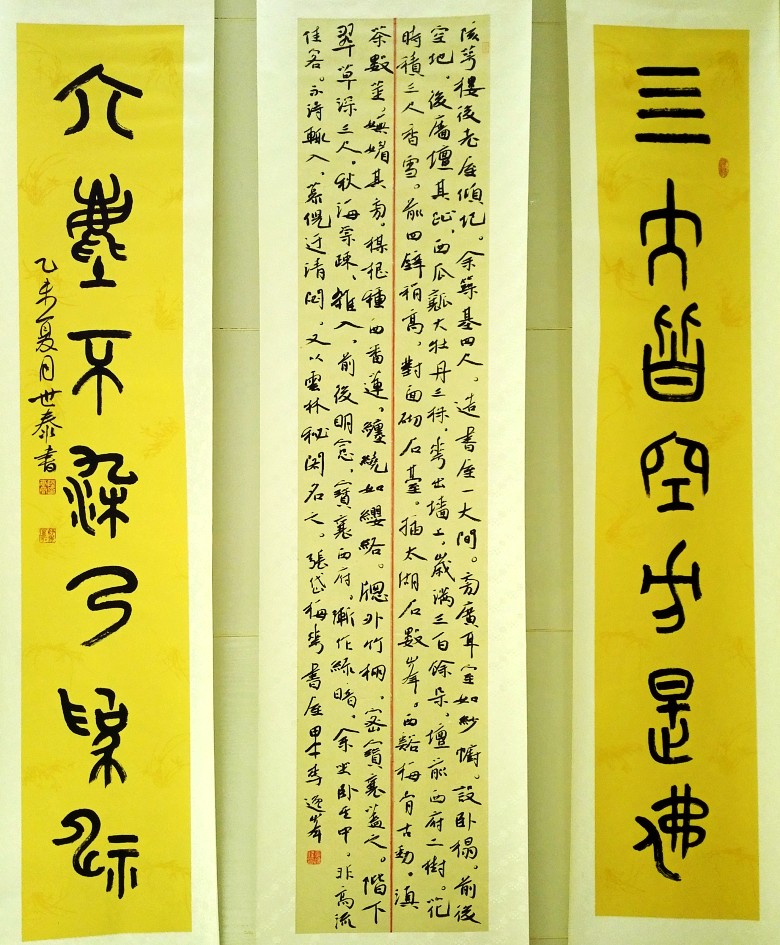 亖大皆空方是佛
陔萼樓後老屋傾圮。余築基四尺。造書屋一大間。旁廣耳室如紗幮。設卧榻。前後
空地，後廣壇其趾，西瓜瓤大牡丹三株，花出墻上，歲滿三百餘朵，壇前西府二樹。花
時積三尺香雪。前四壁稍高。對面砌石臺。插太湖石數峯。西谿梅骨古勁。滇
茶數莖，嫵媚其旁。梅根種西番蓮。纏繞如纓絡。牕外竹棚，密寶襄蓋之。階下
翠草深三尺，秋海棠疎疎雜入。前後明窓，寶襄西府，漸作綠暗。余坐卧其中。非高流
佳客。不得輒入。慕倪迂清閟，又以雲林秘閣名之。張岱梅華書屋甲午季逸峯
六塵不染乃
乙未夏月世泰書